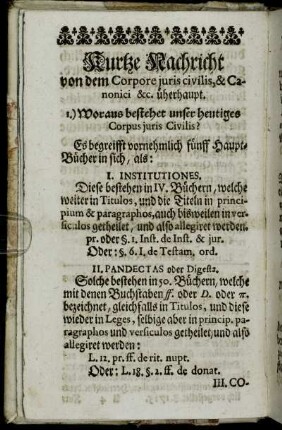 Kurtze Nachricht
von dem Corpore juris civilis, & Ca-
nonici &c. überhaupt.
1.) Woraus bestehet unser heutiges
Corpus juris Civilis?
Es begreifft vornehmlich fünff Haupt-
Bücher in sich, als:
I. INSTITUTIONES,
Diese bestehen in IV. Büchern, welche
weiter in Titulos, und die Titeln in princi-
pium & paragraphos, auch bisweilen in ver-
siculos getheilet, und also allegiret werden.
pr. oder §. 1. Inst. de Inst. & jur.
Oder: §. 6. I. de Testam, ord.
II. PANDECTAS oder Digesta.
Solche bestehen in 50. Büchern, welche
mit denen Buchstaben ff. oder D. oder π.
bezeichnet, gleichfalls in Titulos, und diese
wieder in Leges, selbige aber in princip. pa-
ragraphos und versiculos getheilet, und also
allegiret werden:
L. 12. pr. ff. de rit. nupt.
Oder: L. 18. §. 2. ff. de donat.
III. CO-